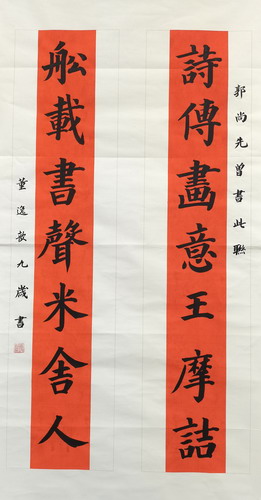 郭尚先曾書此聯
詩傳畫意王摩詰
船載書聲米舍人
董逸敏九歲書